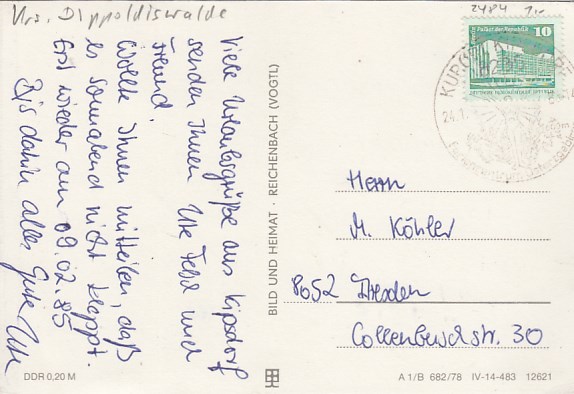 Krs. Dippoldiswalde
2484 1,-
Palast der Republik 10
KURORT KI
24.1.
Viele Urlaubsgrüße aus Kipsdorf
senden Ihnen Ute Tebel und
Freund.
Wollte Ihnen mitteilen, daß
es Sonnabend nicht klappt.
Erst wieder am 09.02.85
Bis dahin alles Gute Ute
BILD UND HEIMAT · REICHENBACH (VOGTL)
Herrn
M. Köhler
8052 Dresden
Collenbuschstr. 30
DDR 0,20 M
A 1/B 682/78 IV-14-483 12621